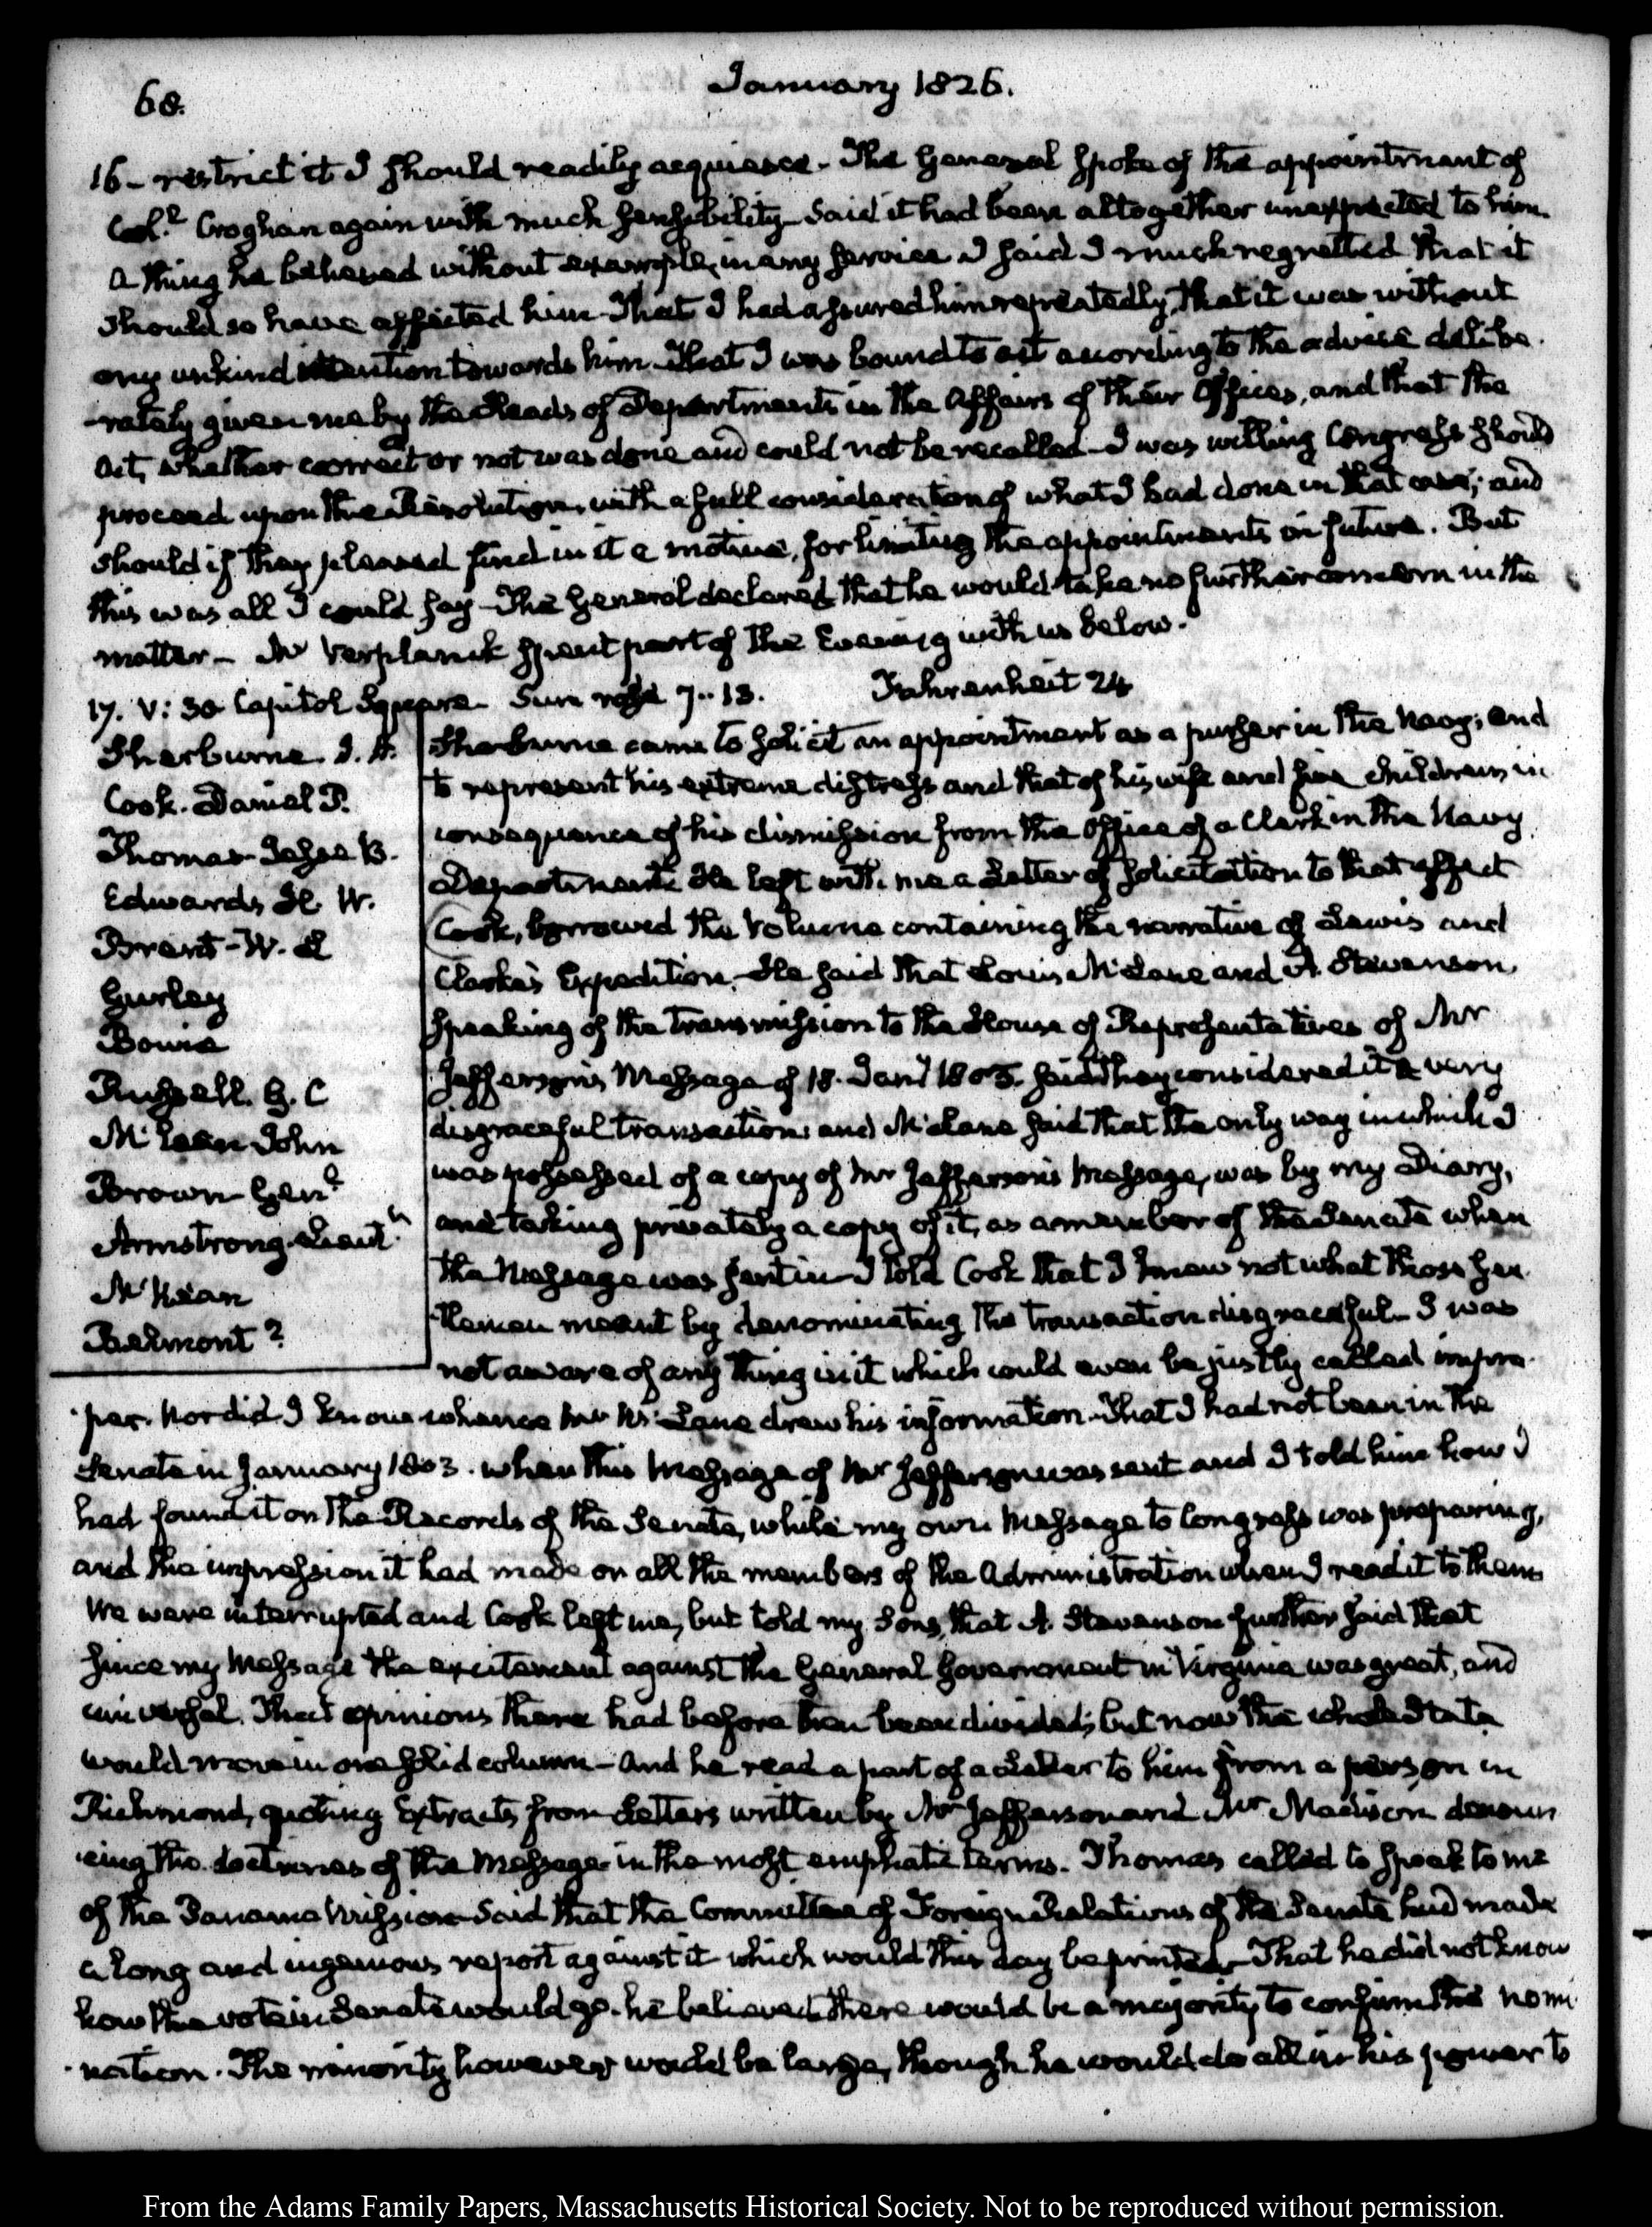 68.
January 1826.
16 – restrict it I should readily acquiesce – The General spoke of the appointment of
Col.l Croghan again with much sensibility – Said it had been altogether unexpected to him.
a thing he believed without example, in any service I said I much regretted that it
should so have affected him – That I had assured him repeatedly, that it was without
any unkind intention towards him – That I was bound to act according to the advice delibe-
-rately given me by the Heads of Departments in the Affairs of their Offices, and that the
act, whether correct or not was done and could not be recalled – I was willing Congress should
proceed upon the Resolution, with a full consideration of what I had done in that case; and
should if they pleased find in it a motive, for limiting the appointments in future. But
this was all I could say – The General declared that he would take no further concern in the
matter – Mr Verplanck spent part of the Evening with us below.
17. V: 30 Capitol Square. Sun rose 7..13. Fahrenheit 24
Sherburne. J. H.
Cook. Daniel P.
Thomas. Jesse B.
Edwards H. W.
Brent – W. L
Gurley
Bowie
Russell. G. C
McLean John
Brown Genl
Armstrong. Lieut
McKean
Baelmont?
Sherburne came to solicit an appointment as a purser in the Navy; and
to represent his extreme distress and that of his wife and five children, in
consequence of his dismission from the Office of a Clerk in the Navy
Department. He left with me a Letter of solicitation to that effect
Cook, borrowed the Volume containing the narrative of Lewis and
Clarke's Expedition. He said that Louis McLane and A. Stevenson,
speaking of the transmission to the House of Representatives of Mr
Jefferson's Message of 18. Jany 1803. said they considered it a very
disgraceful transaction; and McLane said that the only way in which I
was possessed of a copy of Mr Jefferson's Message, was by my Diary,
and taking privately a copy of it, as a member of the Senate when
the Message was sent in – I told Cook that I knew not what those gen-
-tlemen meant by denominating the transaction disgraceful – I was
not aware of any thing in it which could even be justly called impro-
-per. Nor did I know whence Mr McLane drew his information – That I had not been in the
Senate in January 1803. when this Message of Mr Jefferson was sent and I told him how I
had found it on the Records of the Senate, while my own Message to Congress was preparing,
and the impression it had made on all the members of the Administration when I read it to them
We were interrupted and Cook left me, but told my Sons, that A. Stevenson further said that
since my Message the excitement against the General Government in Virginia was great, and
universal. That opinions there had before then been divided; but now the whole State
would move in one solid column – And he read a part of a Letter to him from a person in
Richmond, quoting Extracts from Letters written by Mr Jefferson and Mr Madison denoun-
-cing the doctrines of the Message in the most emphatic terms. Thomas called to speak to me
of the Panama Mission – Said that the Committee of Foreign Relations of the Senate had made
a long and ingenious report against it which would this day be printed – That he did not know
how the vote in Senate would go – he believed there would be a majority to confirm the nomi-
-nation. The minority however would be large, though he would do all in his power to
From the Adams Family Papers, Massachusetts Historical Society. Not to be reproduced without permission.